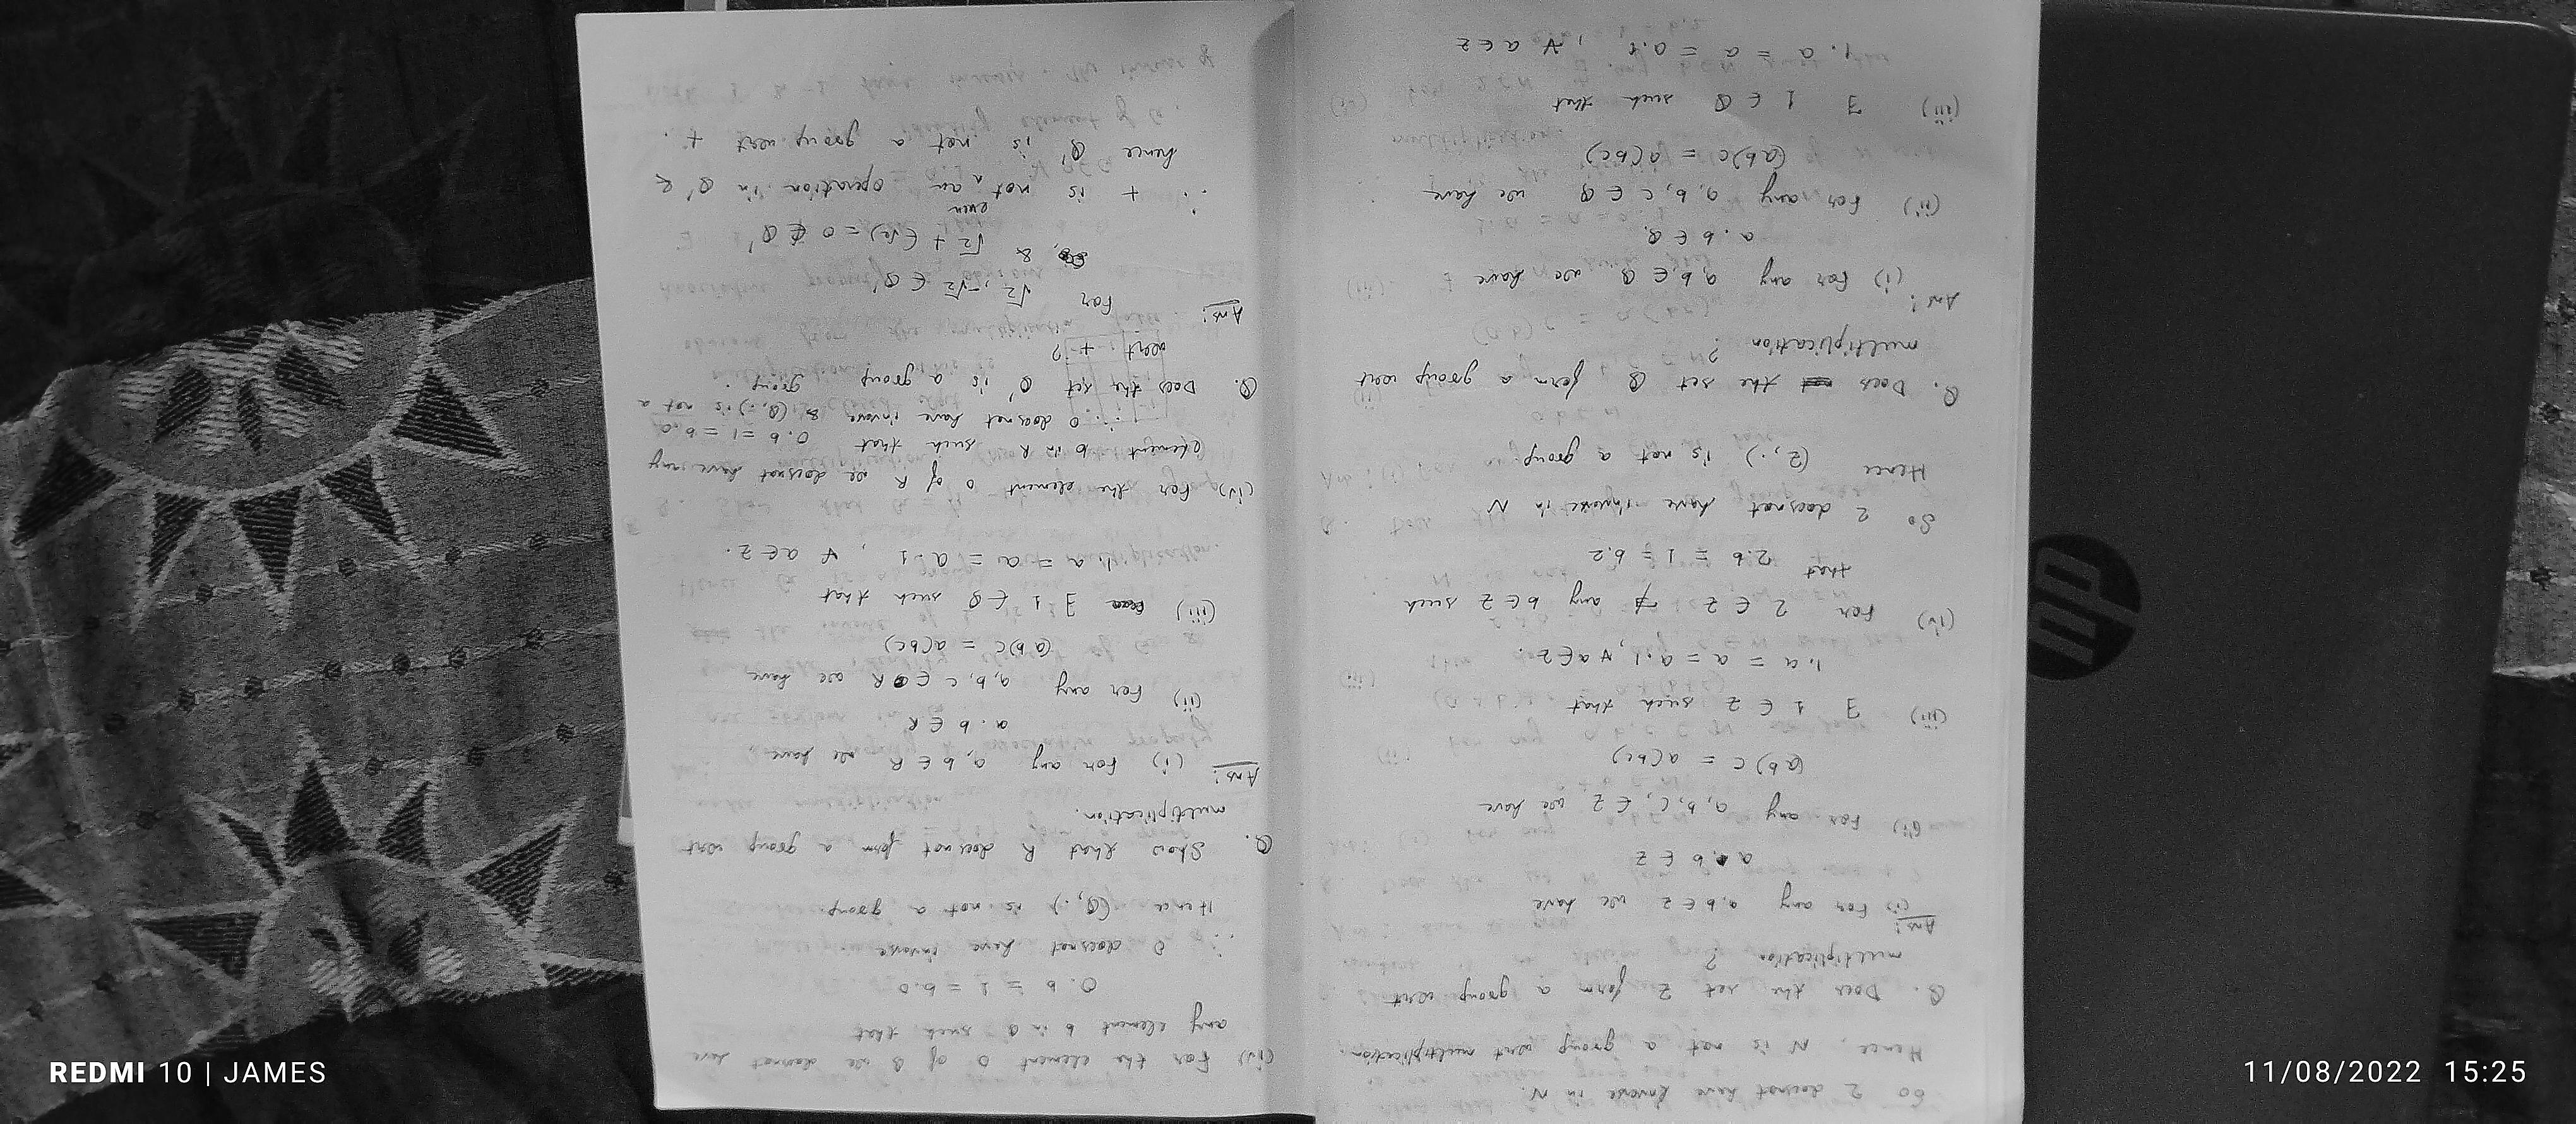 So 2 doesnot have inverse in N.
Hence, N is not a group wrt multiplication.
Q. Does the set Z form a group wrt
multiplication ?
Ans: (i) For any a,b ∈ Z we have
a.b ∈ Z
(ii) For any a,b,c, ∈ Z we have
(ab)c = a(bc)
(iii) ∃ 1 ∈ Z such that
1.a = a = a.1, ∀ a∈Z.
(iv) For 2 ∈ Z ∄ any b∈Z such
that 2.b = 1 = b.2
So 2 doesnot have inverse in N
Hence (Z, .) is not a group.
Q. Does the set Q form a group wrt
multiplication ?
Ans: (i) For any a,b ∈ Q we have
a.b ∈ Q.
(ii) For any a,b,c ∈ Q we have
(ab)c = a(bc)
(iii) ∃ 1 ∈ Q such that
1.a = a = a.1, ∀ a∈Z
(iv) For the element 0 of Q we doesnot have
any element b in Q such that
0.b = 1 = b.0
∴ 0 doesnot have inverse
Hence (Q, .) is not a group.
Q. Show that R doesnot form a group wrt
multiplication.
Ans: (i) For any a,b ∈ R we have
a.b ∈ R
(ii) For any a,b,c ∈ R we have
(ab)c = a(bc)
(iii) ∃ 1 ∈ Q such that
1.a = a = a.1, ∀ a∈Z.
(iv) For the element 0 of R we doesnot have any
element b in R such that 0.b = 1 = b.0
∴ 0 doesnot have inverse & (Q, .) is not a
group.
Q. Does the set Q' is a group
wrt +?
Ans: For √2, -√2 ∈ Q'
& √2 + (-√2) = 0 ∉ Q'
∴ + is not even an operation in Q' &
hence Q' is not a group wrt +.
hp
REDMI 10 | JAMES
11/08/2022 15:25